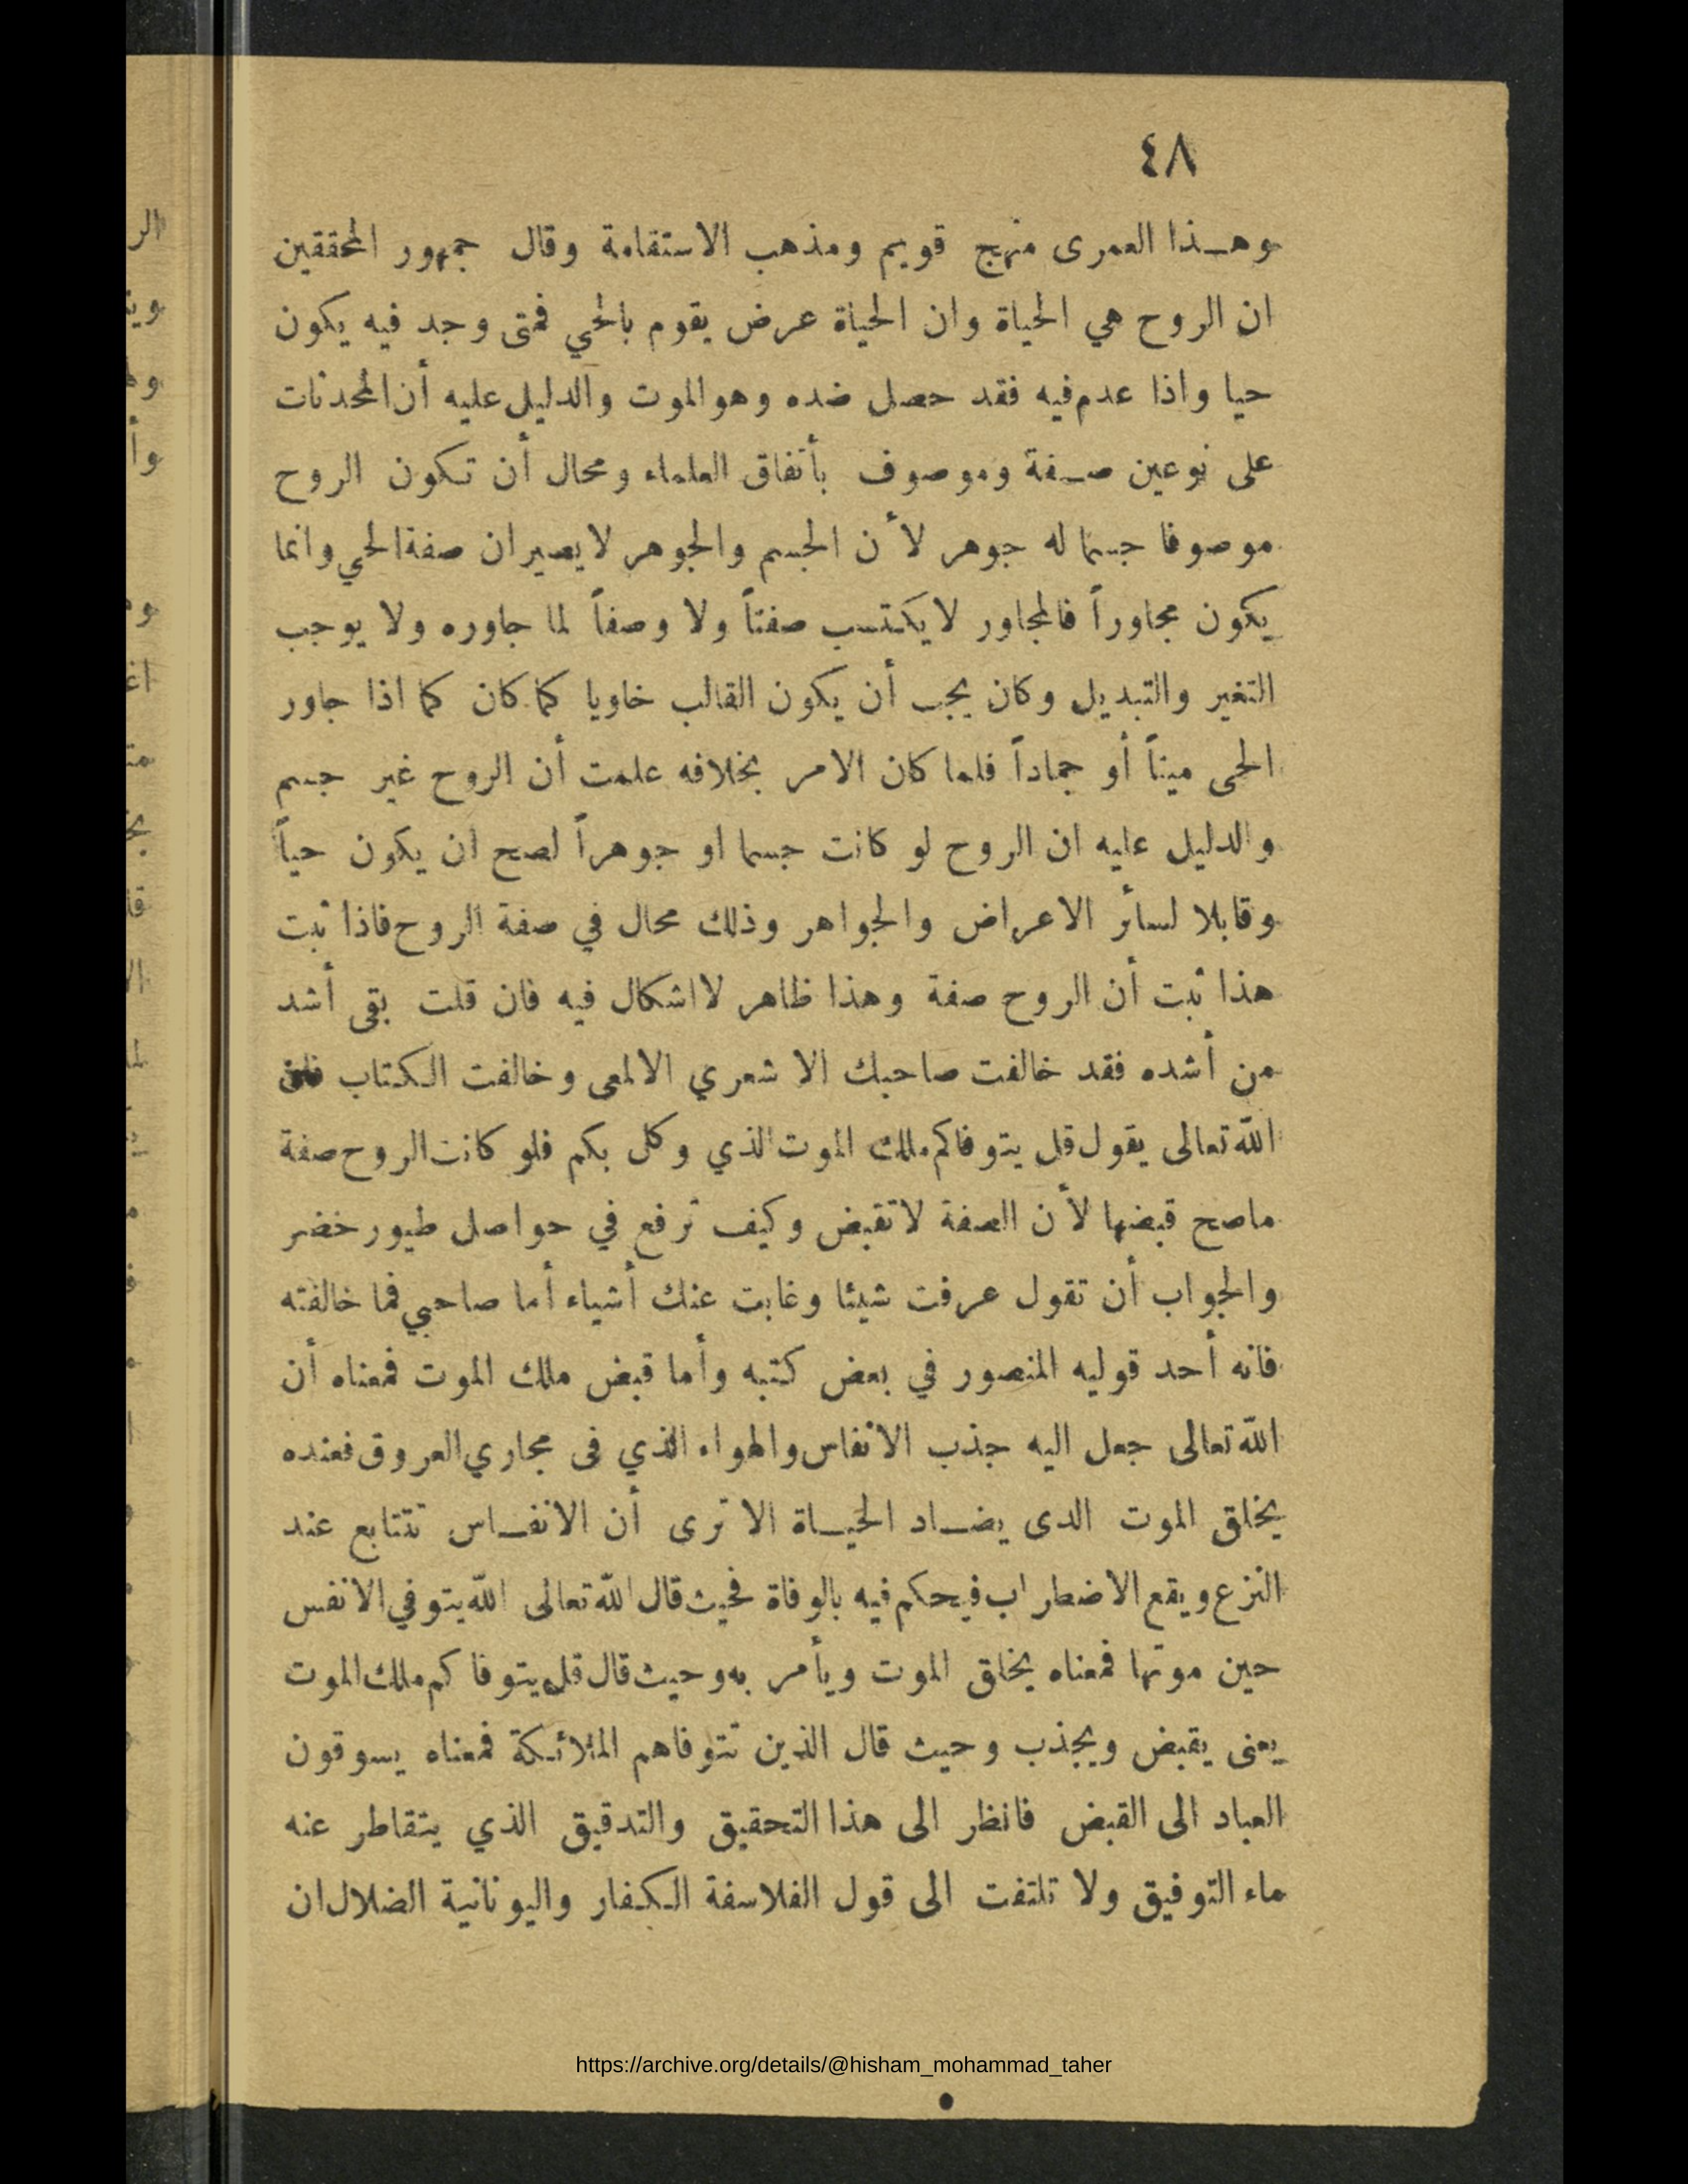 ٤٨
وهـذا العمرى منهج قويم ومذهب الاستقامة وقال جمهور المحققين
ان الروح هي الحياة وان الحياة عرض يقوم بالحي فمتى وجد فيه يكون
حيا واذا عدم فيه فقد حصل ضده وهو الموت والدليل عليه أن المحدثات
على نوعين صـفة وموصوف بأتفاق العلماء ومحال أن تكون الروح
موصوفا جسما له جوهر لأن الجسم والجوهر لا يصيران صفة الحي وانما
يكون مجاوراً فالمجاور لا يكتسب صفتاً ولا وصفاً لما جاوره ولا يوجب
التغير والتبديل وكان يجب أن يكون القالب خاويا كما كان كما اذا جاور
الحى ميتاً أو جماداً فلما كان الامر بخلافه علمت أن الروح غير جسم
والدليل عليه ان الروح لو كانت جسما او جوهراً لصح ان يكون حياً
وقابلا لسائر الاعراض والجواهر وذلك محال في صفة الروح فاذا ثبت
هذا ثبت أن الروح صفة وهذا ظاهر لا اشكال فيه فان قلت بقى أشد
من أشده فقد خالفت صاحبك الاشعري الالمعى وخالفت الكتاب فان
الله تعالى يقول قل يتوفاكم ملك الموت الذي وكل بكم فلو كانت الروح صفة
ماصح قبضها لأن الصفة لا تقبض وكيف ترفع في حواصل طيور خضر
والجواب أن تقول عرفت شيئا وغابت عنك أشياء أما صاحبي فما خالفته
فانه أحد قوليه المنصور في بعض كتبه وأما قبض ملك الموت فمعناه أن
الله تعالى جعل اليه جذب الانفاس والهواء الذي فى مجاري العروق فعنده
يخلق الموت الدى يضـاد الحيـاة الا ترى أن الانفـاس تتتابع عند
النزع ويقع الاضطراب فيحكم فيه بالوفاة فحيث قال الله تعالى الله يتوفي الانفس
حين موتها فمعناه يخلق الموت ويأمر به وحيث قال قل يتوفاكم ملك الموت
يعنى يقبض ويجذب وحيث قال الذين تتوفاهم الملائكة فمعناه يسوقون
العباد الى القبض فانظر الى هذا التحقيق والتدقيق الذي يتقاطر عنه
ماء التوفيق ولا تلتفت الى قول الفلاسفة الكفار واليونانية الضلال ان
https://archive.org/details/@hisham_mohammad_taher